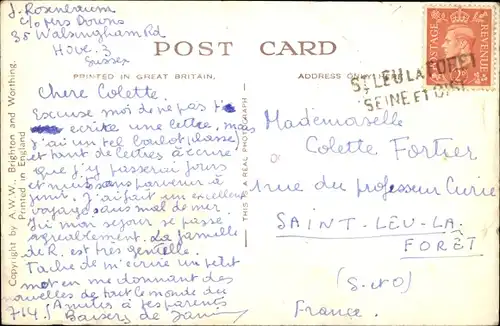 J. Rosenbaum
c/o Mrs Downs
35 Walsingham Rd
Hove. 3
Sussex
POST CARD
PRINTED IN GREAT BRITAIN.
ADDRESS ONLY HERE
POSTAGE
REVENUE
ST LEU LA FORET
SEINE ET OISE
Copyright by A.W.W., Brighton and Worthing.
Printed in England
THIS IS A REAL PHOTOGRAPH
Chere Colette.
Excuse moi de ne pas t'
ecrire une lettre, mais
j'ai un tel boulot (classe)
et tant de lettres à écrire
que j'y passerai jours
et nuits sans parvenir à
finir. J'ai fait un excellent
voyage sans mal de mer.
Ici mon séjour se passe
agreablement. La famille
de R. est très gentille.
Tache de m'ecrire un petit
mot en me donnant des
nouvelles de tout le monde
(Amities à tes parents
7 14. Baisers de
Mademoiselle
Colette Fortier
1 rue du professeur Curie
SAINT-LEU-LA-
FORÊT
(S.-&-O)
France.